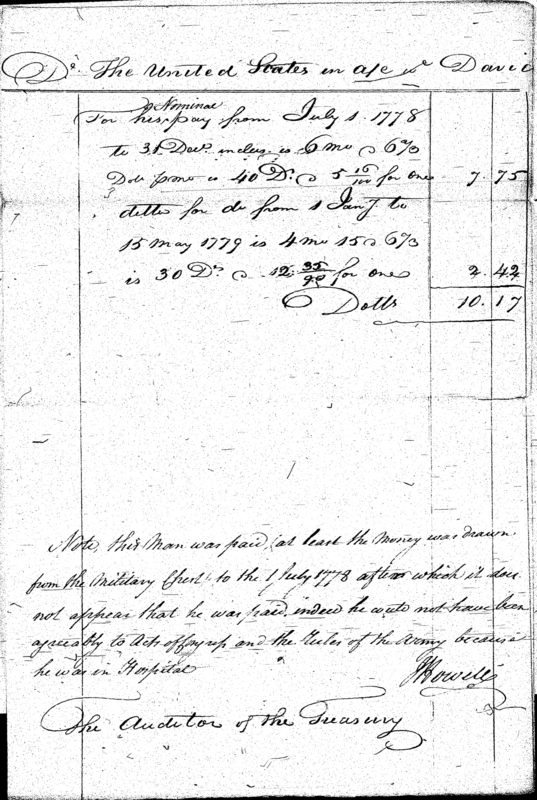 Dr. The United States in a/c wt David
Nominal
For his pay from July 1 1778
to 31 Decr. inclus. is 6 mo @ 6⅔
Dolls pr mo is 40 Ds. @ 5 16/100 for one 7.75
ditto for do from 1 Jany to
15 May 1779 is 4 mo 15 d 6⅔
is 30 Ds @ 12 35/90 for one 2.42
Dolls 10.17
Note, this Man was paid, (at least the money was drawn
from the Military Chest) to the 1 July 1778 after which it does
not appear that he was paid, indeed he could not have been
agreeably to Acts of Congress and the Rules of the Army because
he was in Hospital
J Howell
The Auditor of the Treasury